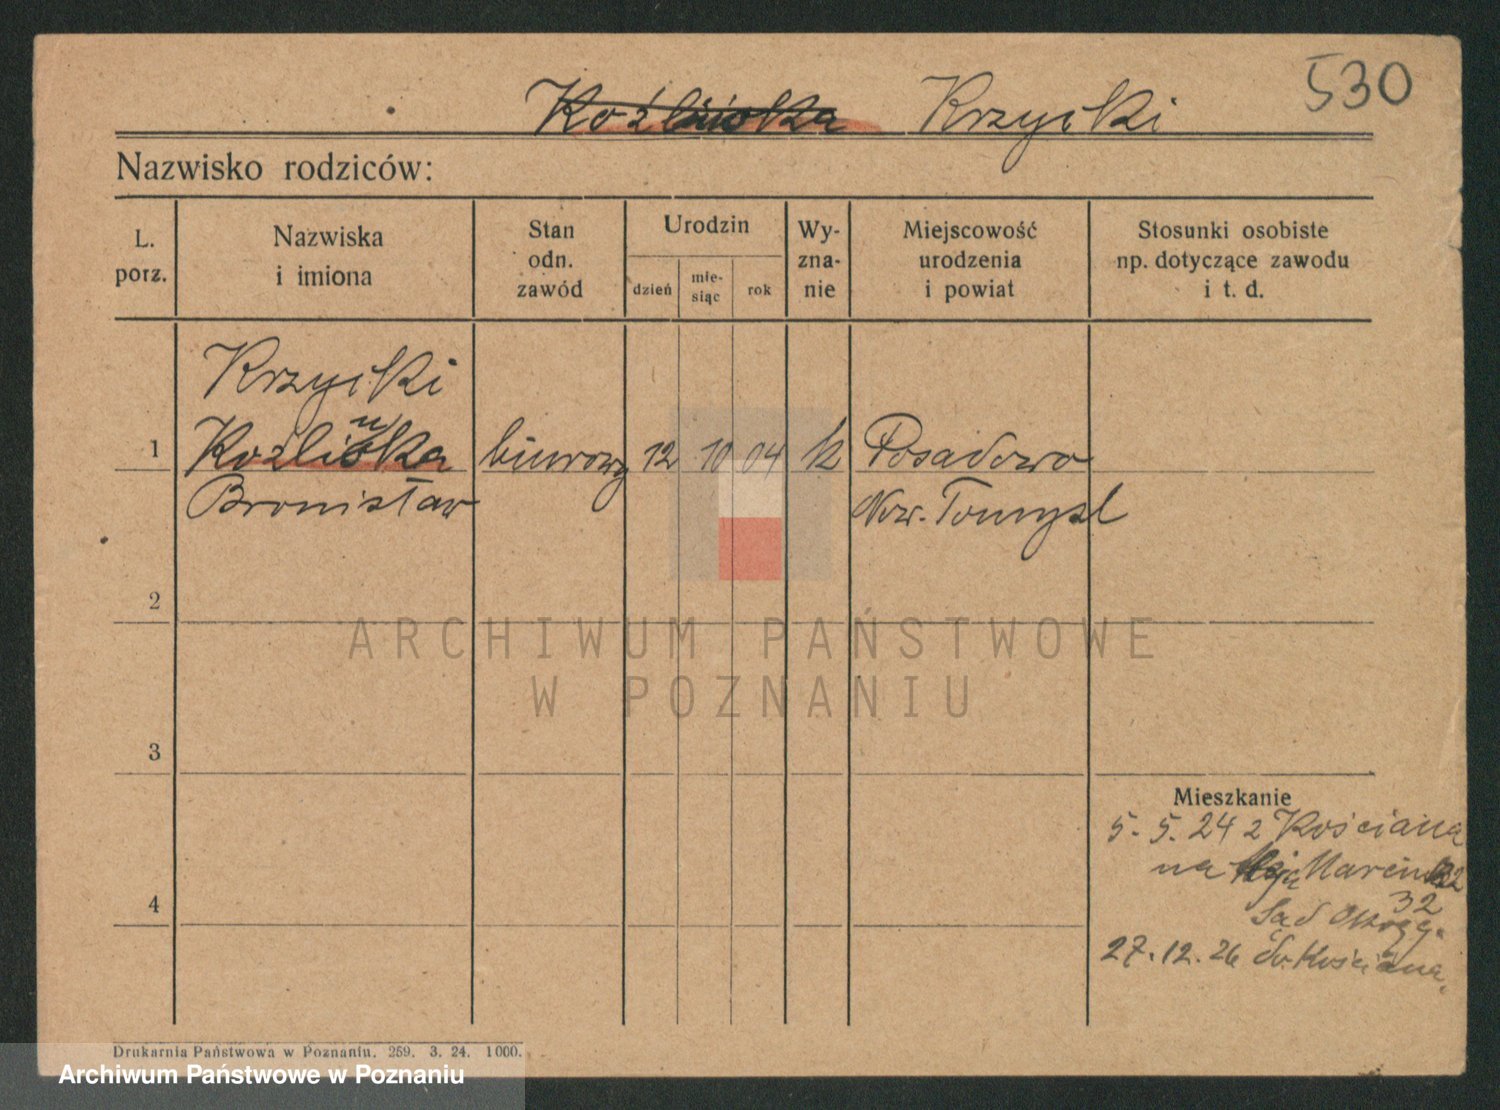 Krzycki 530
Nazwisko rodziców:
L. porz.
Nazwiska i imiona
Stan odn. zawód
Urodzin
dzień
mie-siąc
rok
Wy-zna-nie
Miejscowość urodzenia i powiat
Stosunki osobiste np. dotyczące zawodu i t. d.
Krzycki
1 biurowy 12 10 04 k Posadowo
Bronisław Now. Tomysl
2
3
4
Mieszkanie
5. 5. 24 z Kościana
na Marcink 32
32
Sąd Okręg.
27. 12. 26 do Kościana.
Drukarnia Państwowa w Poznaniu. 259. 3. 24. 1000.
ARCHIWUM PAŃSTWOWE
W POZNANIU
Archiwum Państwowe w Poznaniu